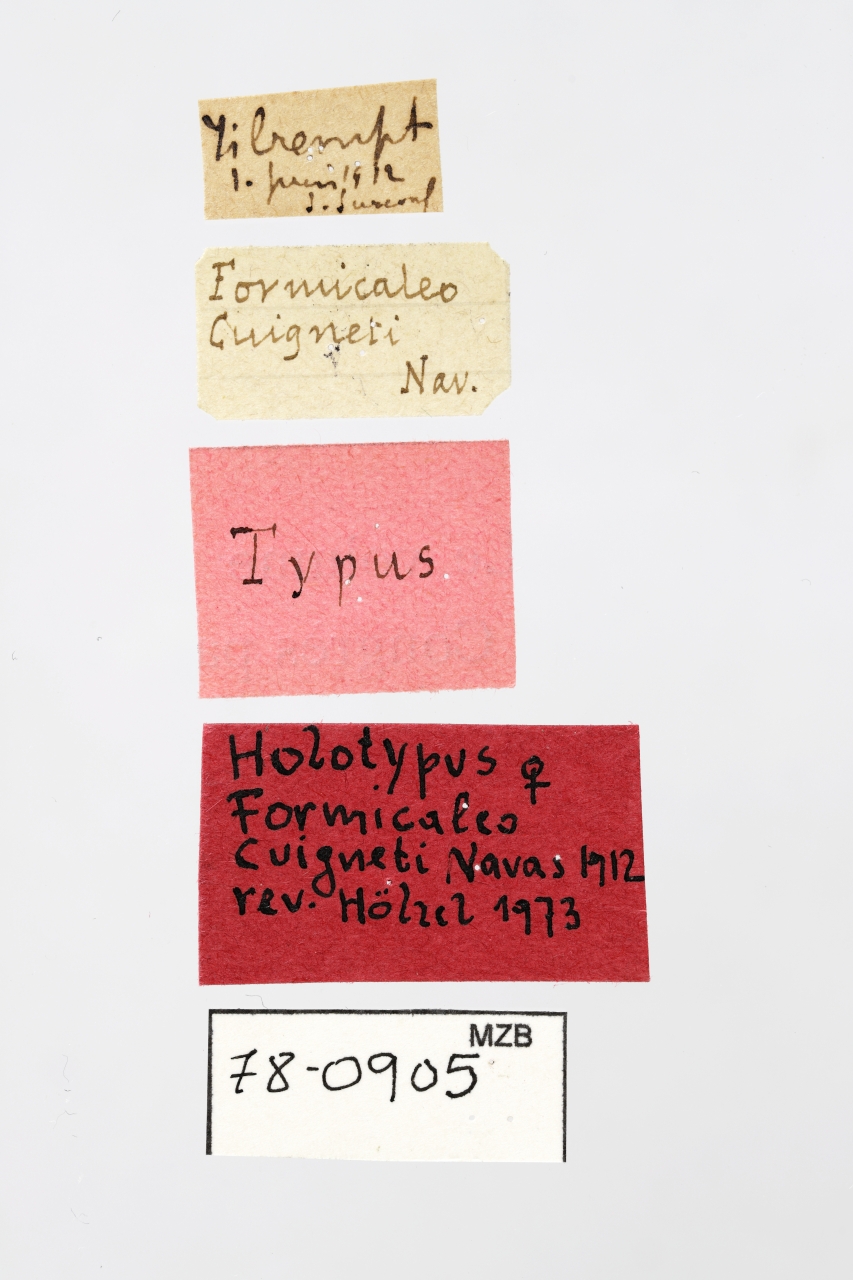 Tilrempt
1. juin 1912
J. Surcouf
Formicaleo
Cuigneti
Nav.
Typus
Holotypus ♀
Formicaleo
Cuigneti Navas 1912
rev. Hölzel 1973
MZB
78-0905